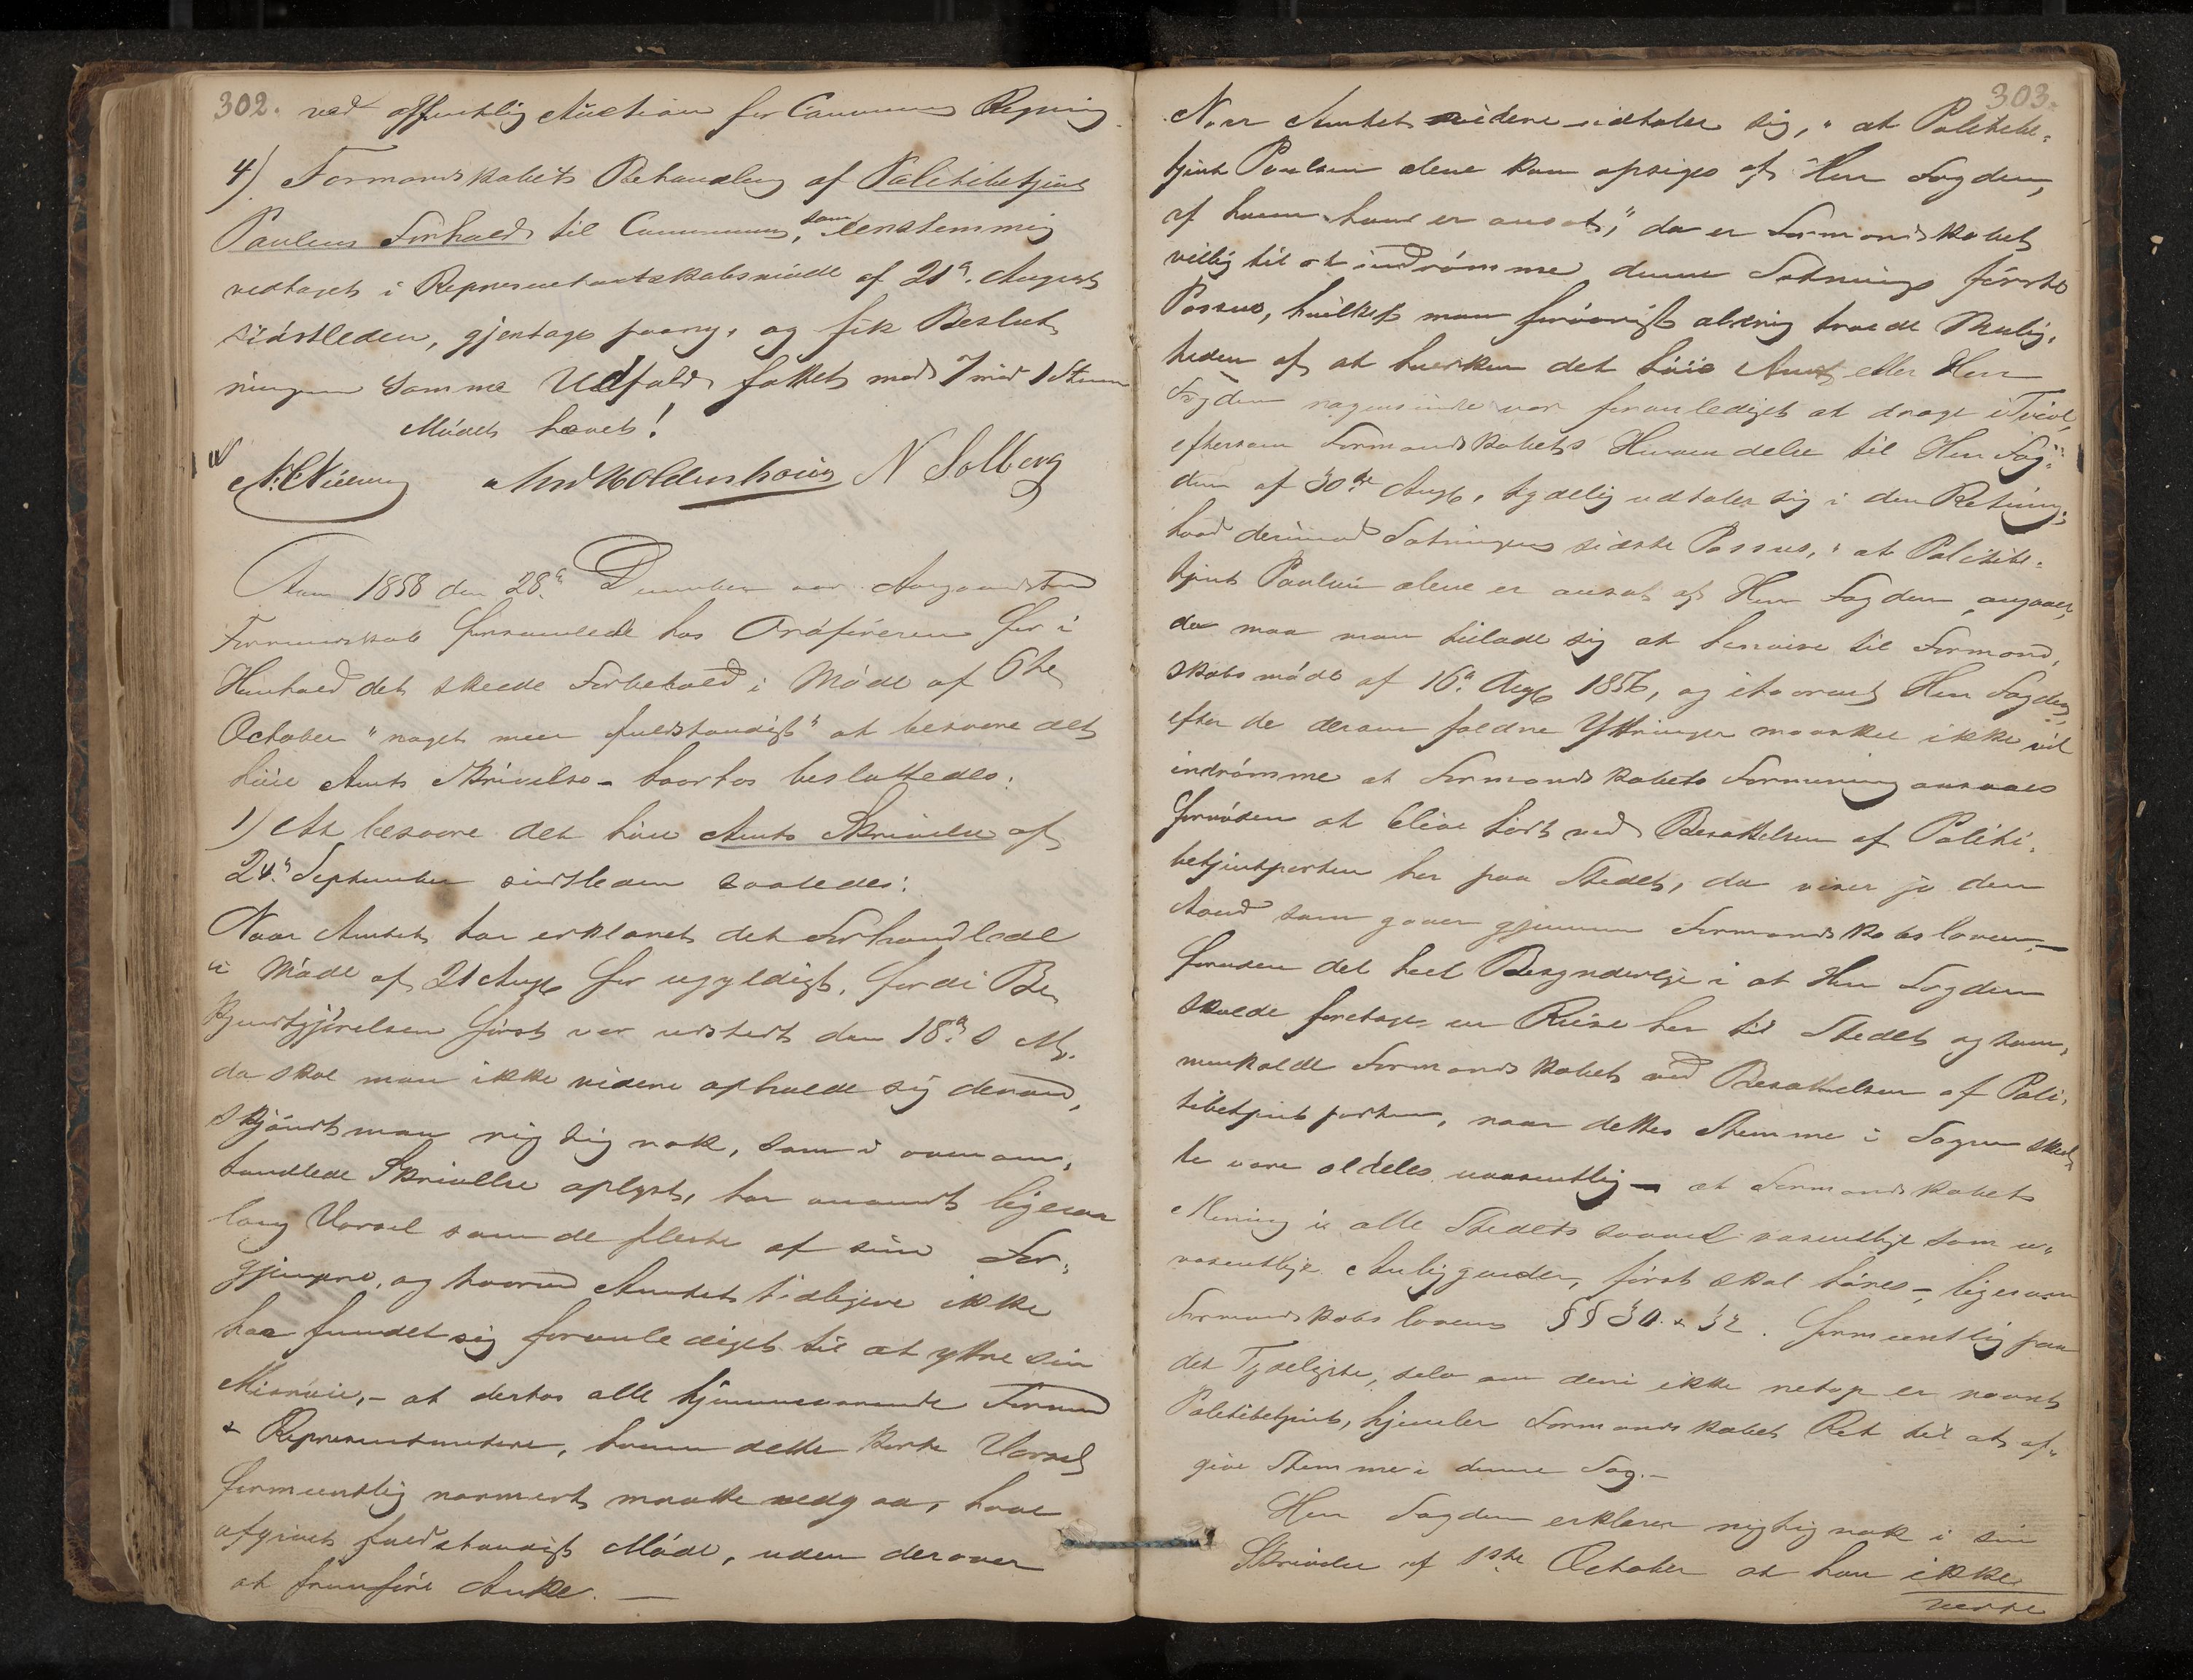 302. ved offentlig Auction for Communens Regning
4) Formandskabets Behandling af Politibetjent
Paulsens Forhold til Communen, som eenstemmig
vedtaget i Repræsentantskabsmøde af 21de August
sidstleden, gjentages paany, og fik Beslut-
ningen samme Udfald, fattet med 7 mod 1 Stemme
Mødet hævet!
N Solberg
Aar 1858 den 28de December var
Formandskab forsamlede hos Ordføreren for i
Henhold det skeede Forbehold i Møde af 6te
October "noget meer fuldstændigt" at besvare det
høie Amts Skrivelse - hvorhos besluttedes:
1) At besvare det høie Amts Skrivelse af
24de September sidstleden saaledes:
Naar Amtet har erklæret det Forhandlede
i Møde af 21 Augt for ugyldigt, fordi Be-
kjendtgjørelsen først var udstedt den 18de s. M.
da skal man ikke videre opholde sig derved,
skjøndt man rigtig nok, som i ovenom-
handlede Skrivelse oplyst, har anvendt ligesaa
lang Varsel som de fleste af sine For-
gjængere, og hvorved Amtet tidligere ikke
har fundet sig foranlediget til at yttre sin
Misnøie, - at derhos alle hjemmeværende Formænd
& Repræsentantere, hvem dette korte Varsel
formeentlig nærmest maatte vedgaa, have
afgivet fuldstændigt Møde, uden derover
at fremføre Anke. —
303.
Naar Amtet videre udtaler sig, "at Politibe-
tjent Paulsen alene kan opsiges af Herr Fogden,
af hvem han er ansat," da er Formandskabet
villig til at indrømme denne Sætnings første
Passus, hvilket man forøvrigt aldrig troede Mulig-
heden af at hverken det høie Amt eller Herr
Fogden nogensinde var foranlediget at drage i Tvivl,
eftersom Formandskabets Henvendelse til Herr Fog-
den af 30te Augt, tydelig udtaler sig i den Retning;
hvad derimod Sætningens sidste Passus, "at Politibe-
tjent Paulsen alene er ansat af Herr Fogden" angaaer,
da maa man tillade sig at henvise til Formand-
skabsmøde af 16de Augt 1856, og ihvorvel Herr Fogden,
efter de derom faldne Yttringer maaskee ikke vil
indrømme at Formandskabets Formening ansaaes
fornøden at blive hørt ved Besættelsen af Politi-
betjentposten her paa Stedet, da viser jo den
Aand som gaaer gjennem Formandskabsloven, —
foruden det heel Besynderlige i at Herr Fogden
skulde foretage en Reise her til Stedet og sam-
menkalde Formandskabet ved Besættelsen af Poli-
tibetjentposten, naar dettes Stemme i Sagen skul-
de være aldeles uvæsentlig — at Formandskabets
Mening i alle Stedets saavel væsentlige som u-
væsentlige Anliggender, først skal høres -, ligesom
Formandskabslovens §§ 30 & 32. formeentlig paa
det Tydeligste, selv om deri ikke netop er nævnt
Politibetjent, hjemler Formandskabet Ret til at af-
give Stemme i denne Sag. —
Herr Fogden erklærer rigtig nok i sin
Skrivelse af 1ste October at han ikke